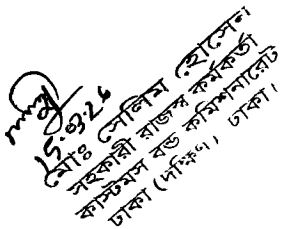 15.03.26
মোঃ সেলিম হোসেন
সহকারী রাজস্ব কর্মকর্তা
কাস্টমস বন্ড কমিশনারেট
ঢাকা (দক্ষিণ), ঢাকা।